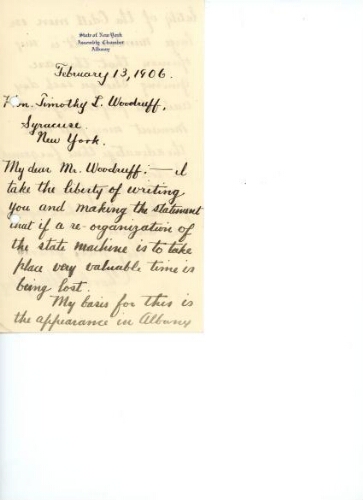 State of New York
Assembly Chamber
Albany
February 13, 1906.
Hon. Timothy L. Woodruff,
Syracuse.
New York.
My dear Mr. Woodruff:— I
take the liberty of writing
you and making the statement
that if a re-organization of
the state machine is to take
place very valuable time is
being lost.
My basis for this is
the appearance in Albany